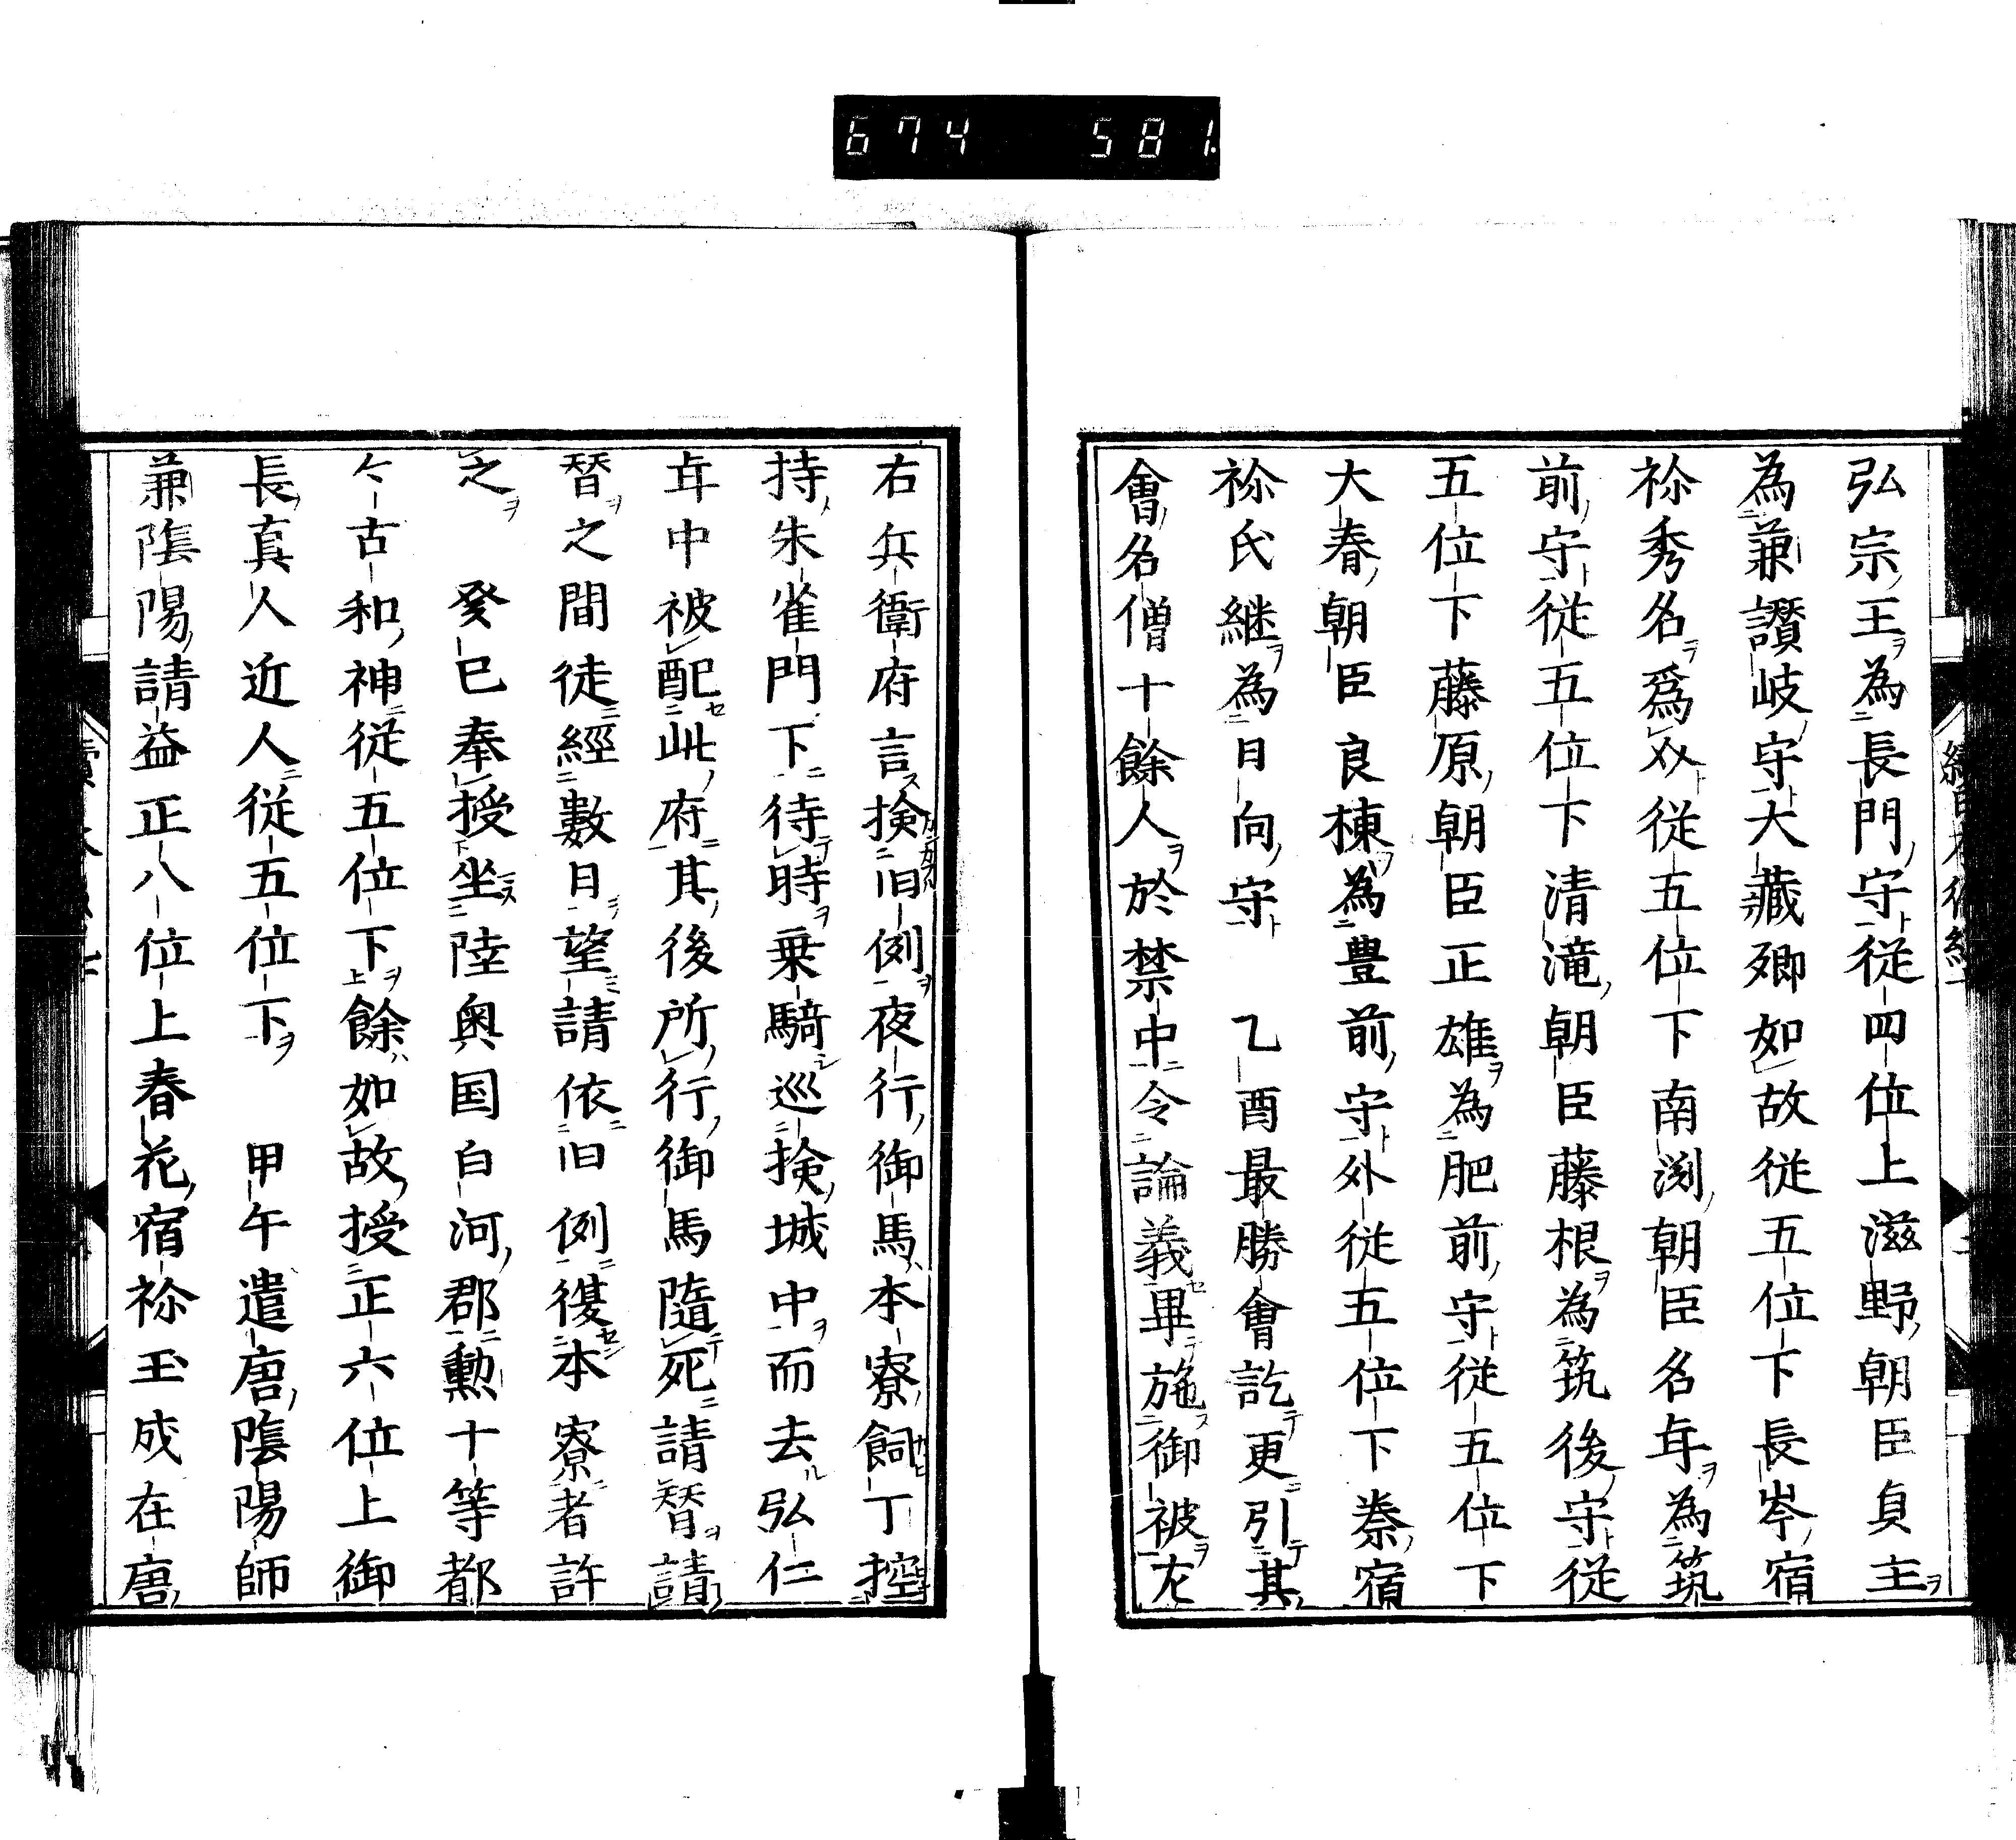 674 581
弘宗王為長門守従四位上滋野朝臣貞主
為兼讃岐守大蔵卿如故従五位下長岑宿
祢秀名爲介従五位下南渕朝臣名年為筑
前守従五位下清滝朝臣藤根為筑後守従
五位下藤原朝臣正雄為肥前守従五位下
大春朝臣良棟為豊前守外従五位下秦宿
祢氏継為日向守　乙酉最勝會訖更引其
會名僧十餘人於禁中令論義畢施御被左
右兵衛府言検旧例夜行御馬本寮飼丁控
持朱雀門下待時乗騎巡検城中而去弘仁
年中被配此府其後所行御馬随死請替請
替之間徒經數日望請依旧例復本寮者許
之　癸巳奉授坐陸奥国白河郡勲十等都
々古和神従五位下餘如故授正六位上御
長真人近人従五位下　甲午遣唐陰陽師
兼陰陽請益正八位上春花宿祢玉成在唐